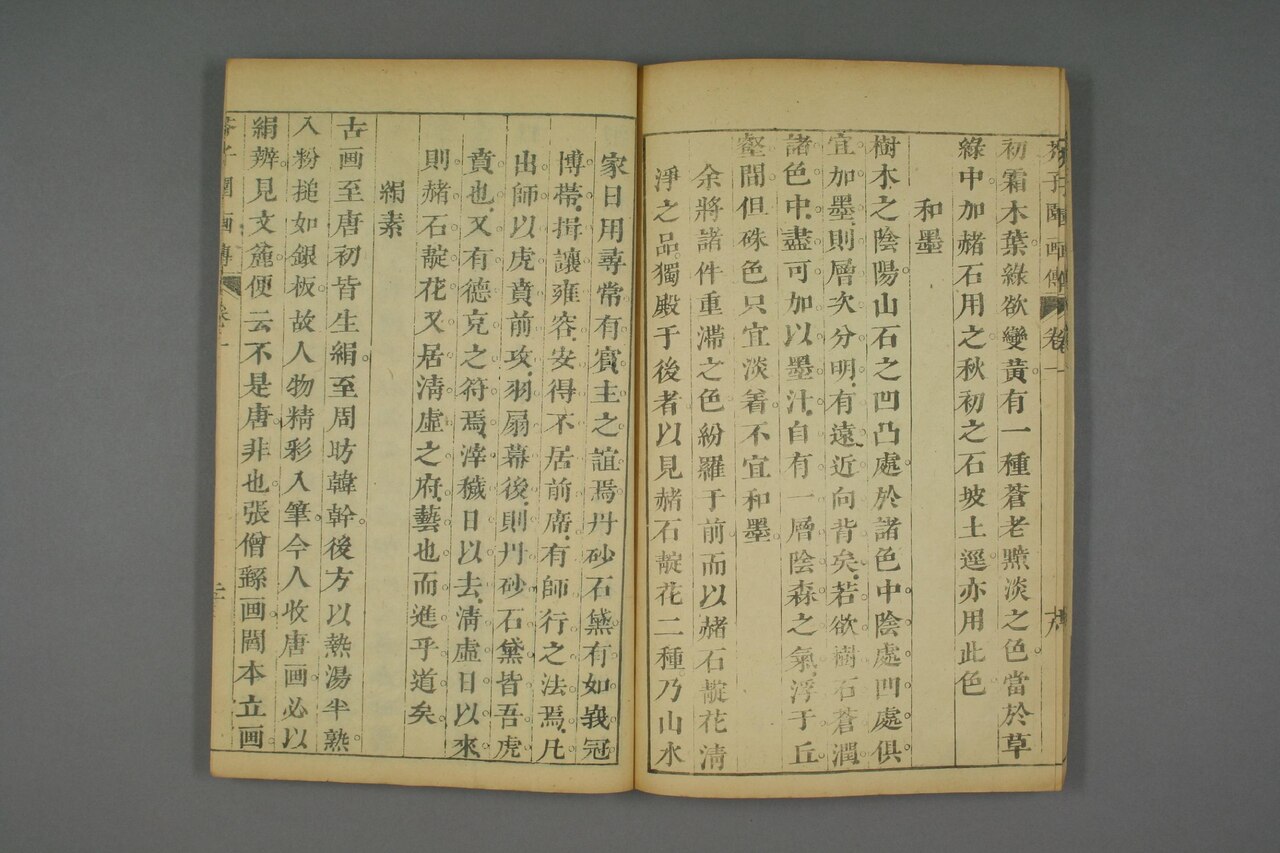 芥子園画傳 卷一
初霜木葉綠欲變黃有一種蒼老黯淡之色當於草
綠中加赭石用之秋初之石坡土逕亦用此色
和墨
樹木之陰陽山石之凹凸處於諸色中陰處凹處俱
宜加墨則層次分明有遠近向背矣若欲樹石蒼潤
諸色中盡可加以墨汁自有一層陰森之氣浮于丘
壑間但硃色只宜淡着不宜和墨
余將諸件重滯之色紛羅于前而以赭石靛花清
淨之品獨殿于後者以見赭石靛花二種乃山水
家日用尋常有賓主之誼焉丹砂石黛有如峩冠
博帶揖讓雍容安得不居前席有師行之法焉凡
出師以虎賁前攻羽扇幕後則丹砂石黛皆吾虎
賁也又有德克之符焉滓穢日以去清虛日以來
則赭石靛花又居清虛之府藝也而進乎道矣
絹素
古画至唐初皆生絹至周昉韓幹後方以熱湯半熟
入粉搥如銀板故人物精彩入筆今人收唐画必以
絹辨見文麄便云不是唐非也張僧繇画閻本立画
芥子園画傳 卷一